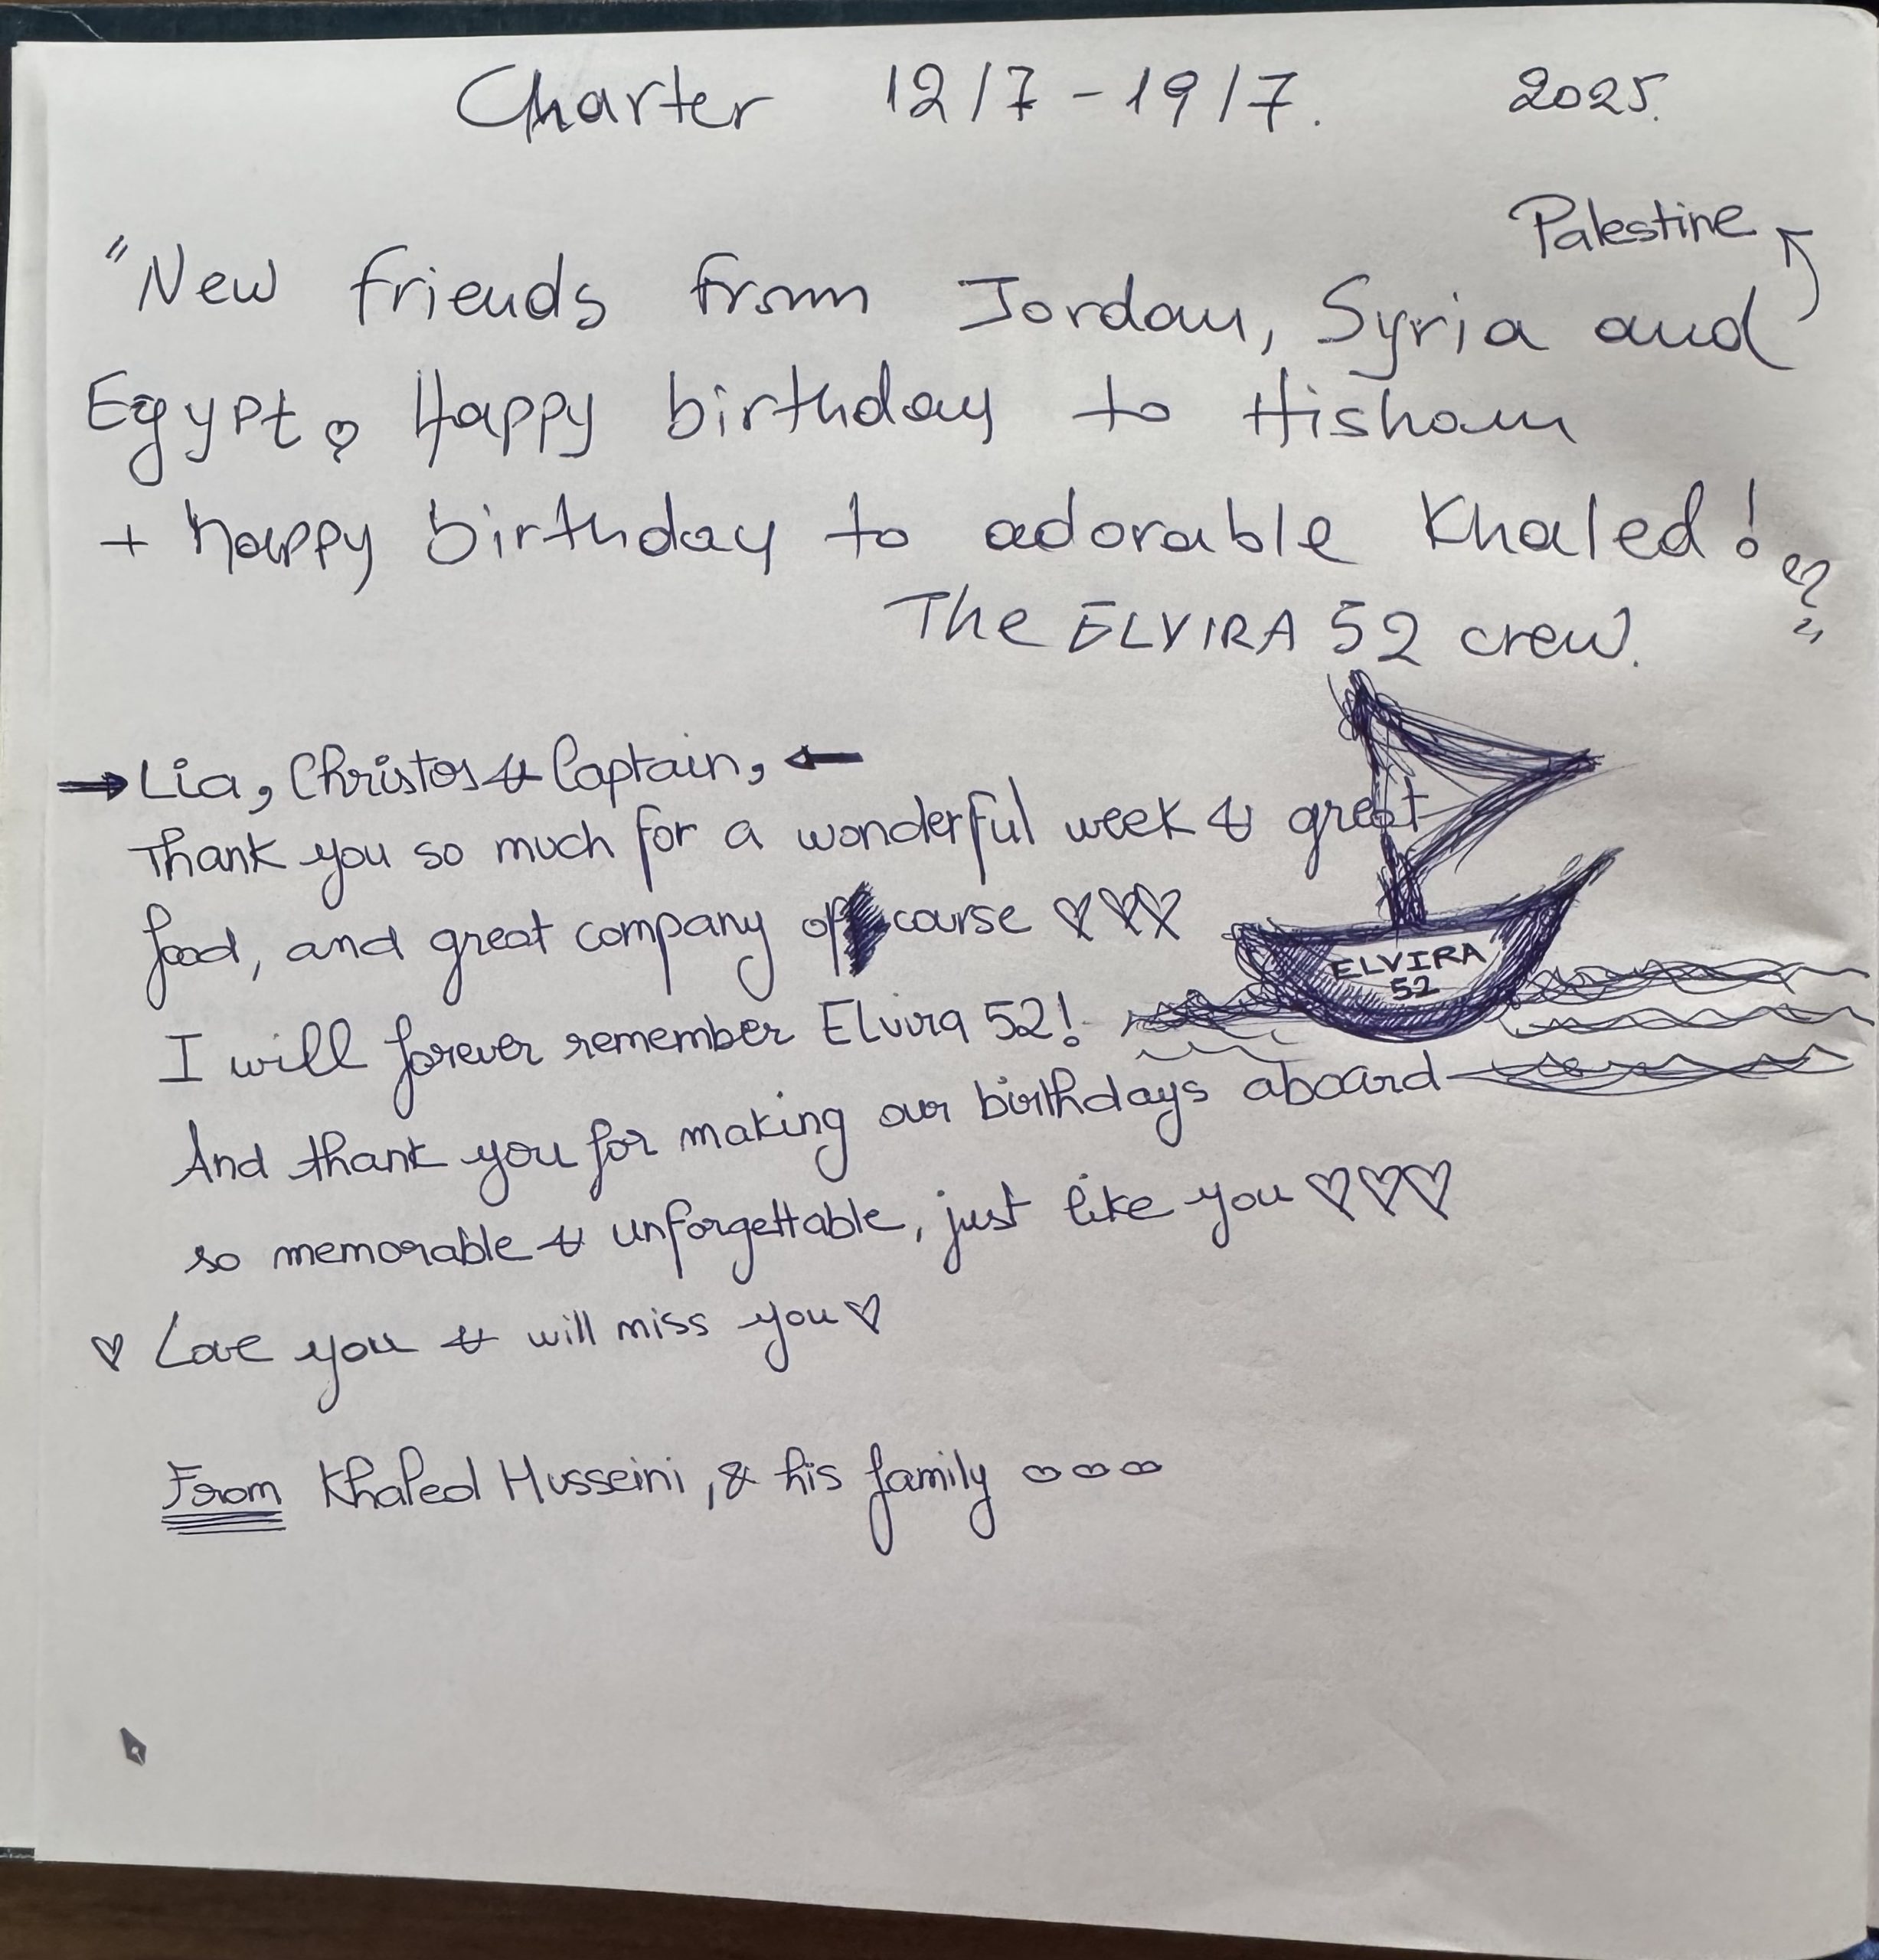 Charter 12/7 - 19/7. 2025.
Palestine
"New friends from Jordan, Syria and
Egypt ♡ Happy birthday to Hisham
+ happy birthday to adorable Khaled! ♡"
The ELVIRA 52 crew.
→ Lia, Christos & Captain, ←
Thank you so much for a wonderful week & great
food, and great company of course ♡♡♡
ELVIRA
52
I will forever remember Elvira 52!
And thank you for making our birthdays aboard
so memorable & unforgettable, just like you ♡♡♡
♡ Love you & will miss you ♡
From Khaled Husseini, & his family ♡♡♡